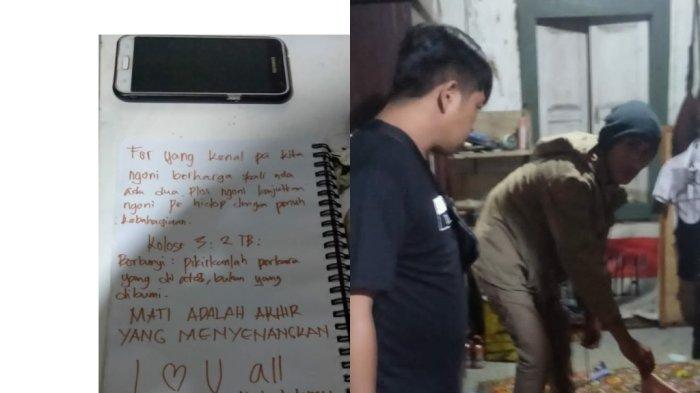 SAMSUNG
For yang kenal pa kita
ngoni berharga skali nda
ada dua. Plos ngoni lanjutkan
ngoni pe hidop dengan penuh
kebahagiaan.
Kolose 3: 2 TB:
Berbunyi: Pikirkanlah perkara
yang di atas, bukan yang
dibumi.
MATI ADALAH AKHIR
YANG MENYENANGKAN
I ♡ U all